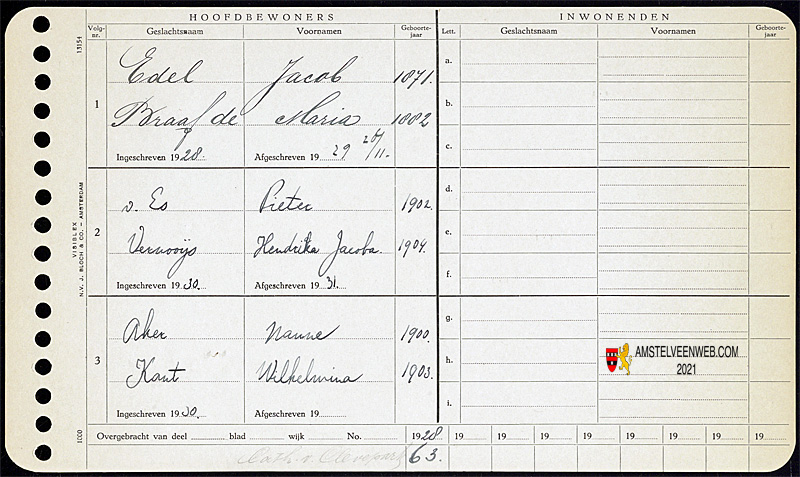 HOOFDBEWONERS INWONENDEN
Volg-nr. Geslachtsnaam Voornamen Geboorte-jaar Lett. Geslachtsnaam Voornamen Geboorte-jaar
13154
1
Edel Jacob 1871.
Braaf de Maria 1882
Ingeschreven 1928. Afgeschreven 19 29 20/11.
2
v. Es Pieter 1902.
Vernooijs Hendrika Jacoba. 1904.
Ingeschreven 1930. Afgeschreven 1931.
3
Aker Nanne 1900.
Kant Wilhelmina 1903.
Ingeschreven 1930. Afgeschreven 19
a.
b.
c.
d.
e.
f.
g.
h.
i.
VISIBLEX
N.V. J. BLOCH & CO. - AMSTERDAM
1000
AMSTELVEENWEB.COM
2021
Overgebracht van deel blad wijk No. 1928 19 19 19 19 19 19 19 19
63.